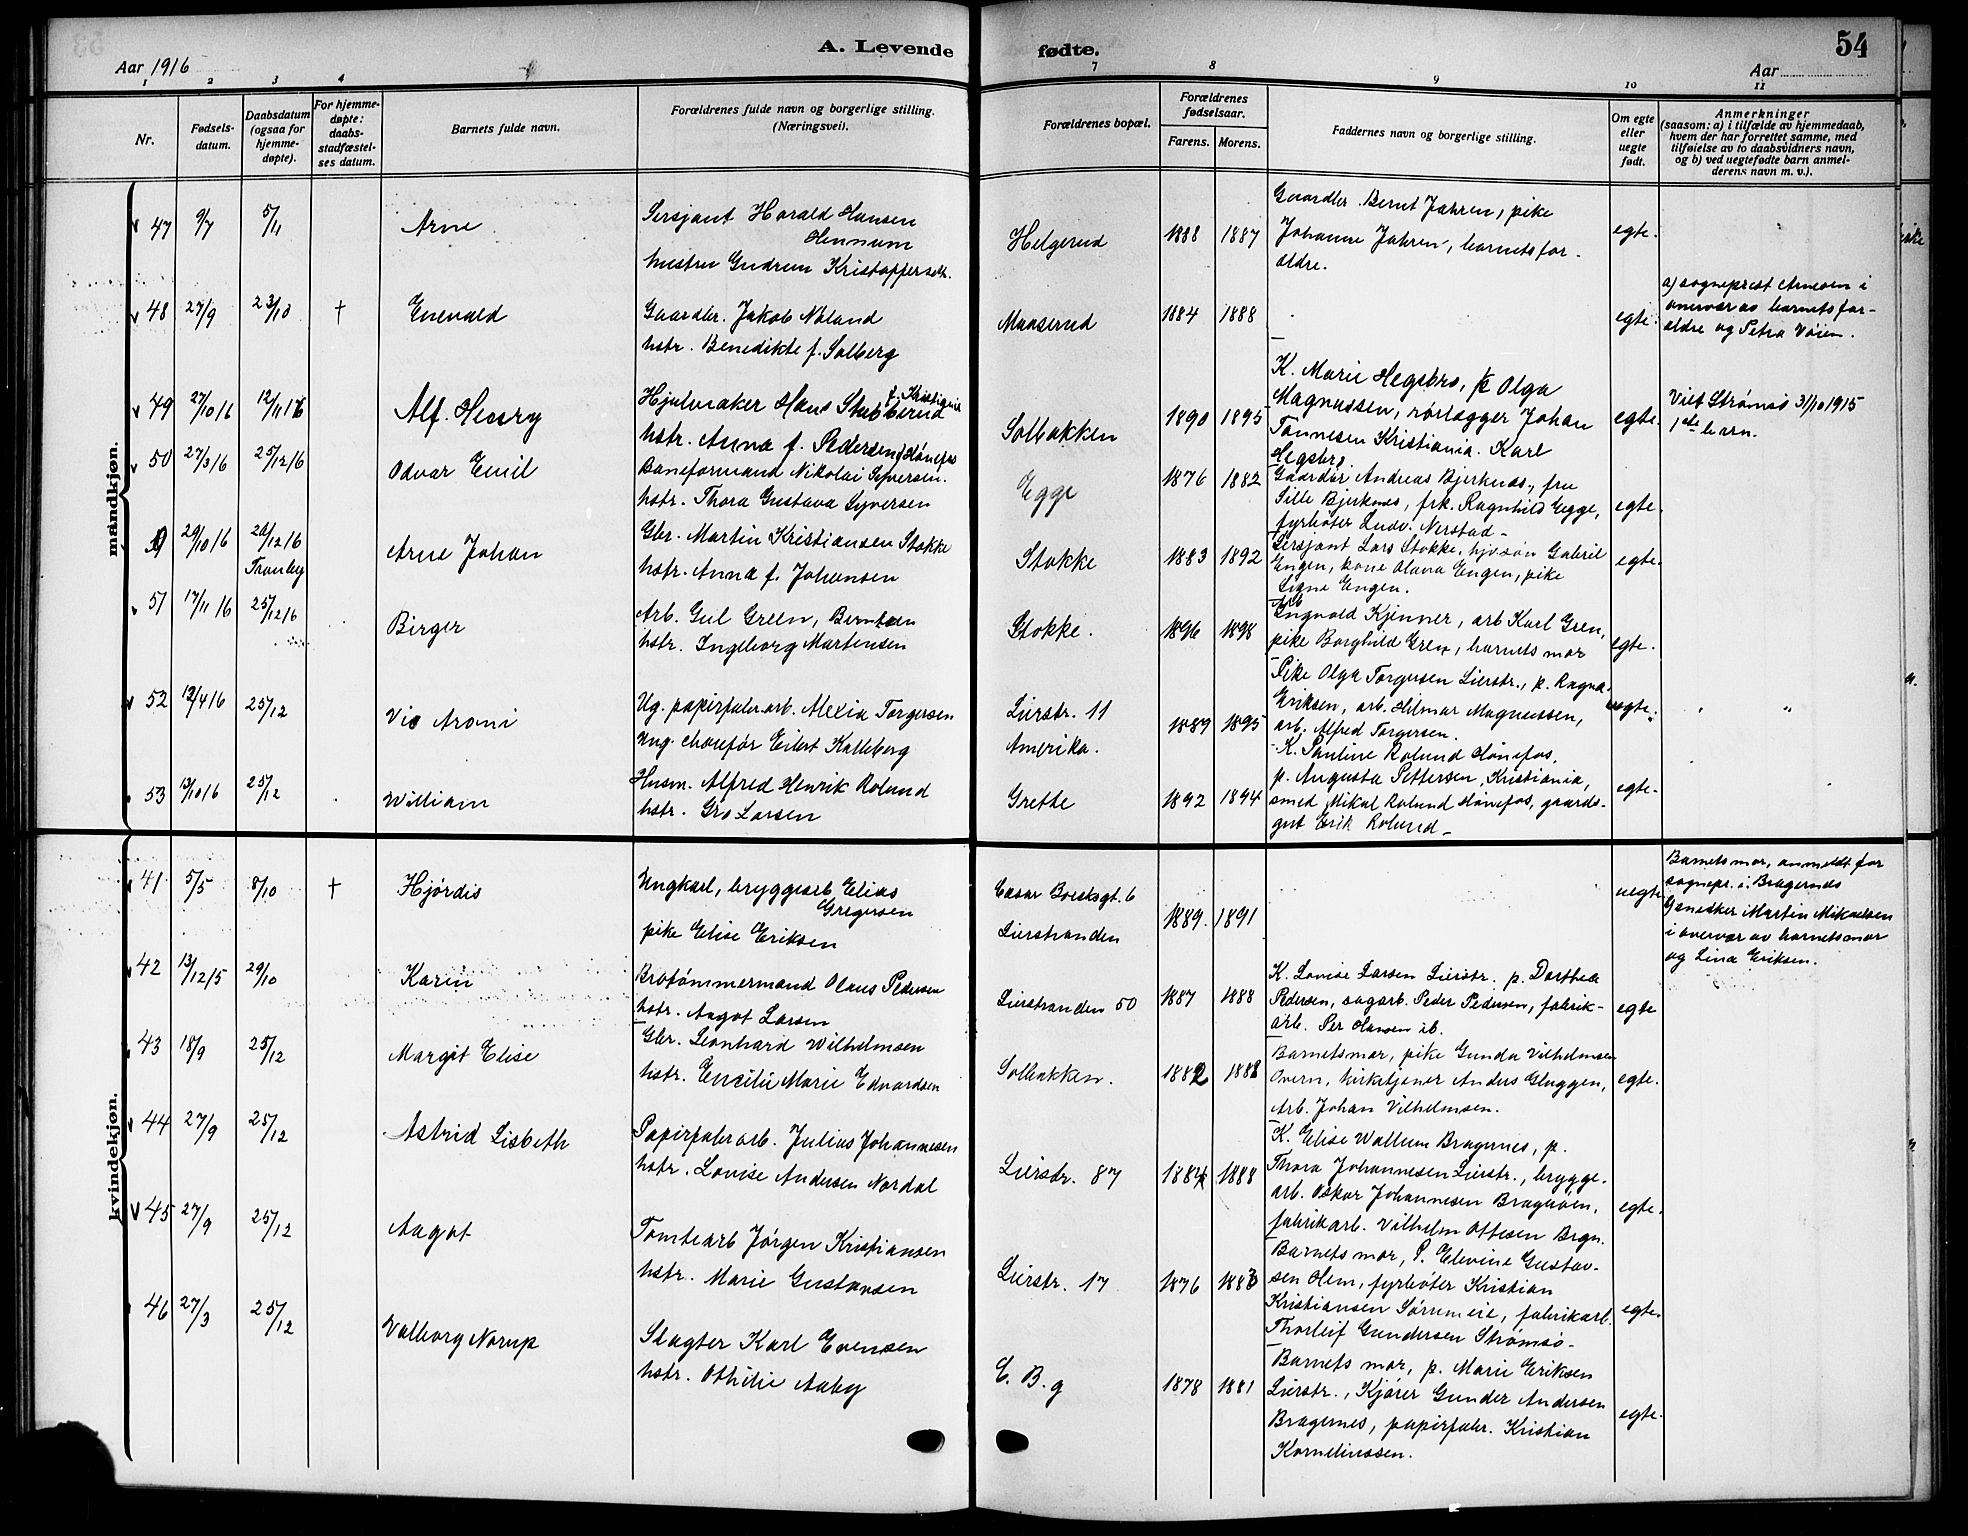 A. Levende fødte.
54
Aar 1916
Aar
1 2 3 4 7 8 9 10 11
Nr.
Fødsels-
datum.
Daabsdatum
(ogsaa for
hjemme-
døpte).
For hjemme-
døpte:
daabs-
stadfæstel-
ses datum.
Barnets fulde navn.
Forældrenes fulde navn og borgerlige stilling.
(Næringsvei).
Forældrenes bopæl.
Forældrenes
fødselsaar.
Farens. Morens.
Faddernes navn og borgerlige stilling.
Om egte
eller
uegte
født.
Anmerkninger
(saasom: a) i tilfælde av hjemmedaab,
hvem der har forrettet samme, med
tilføielse av to daabsvidners navn,
og b) ved uegtefødte barn anmel-
derens navn m. v.).
mandkjøn.
47 9/7 5/11 Arne
Sersjant Harald Hansen
Hennum
hustru Gudrun Kristoffersdt.
Helgerud 1888 1887
Gaardbr. Bernt Jahren, pike
Johanne Jahren, barnets for-
ældre.
egte.
48 27/9 23/10 † Enevald
Gaardbr. Jakob Nøland
hstr. Benedikte f. Solberg
Maaserud 1884 1888
egte.
a) sogneprest Arnesen i
overvær av barnets for-
ældre og Petra Vøien.
49 27/10 16 12/11 16 Alf. Henry
Hjulmaker Hans Stubberud
f. Kristiania
hstr. Anna f. Pedersen, Hønefos
Solbakken 1890 1895
K. Marie Hegsbro, p. Olga
Magnussen, rørlægger Johan
Tønnesen Kristiania. Karl
Hegsbro
egte.
Viet Strømsø 31/10 1915
1ste barn.
50 27/3 16 25/12 16 Odvar Emil
Baneformand Nikolai Syversen.
hstr. Thora Gustava Syversen
Egge 1876 1882
Gaardbr Andreas Bjerknes, fru
Sille Bjerknes, frk. Ragnhild Egge,
fyrbøter Ludv. Nerstad
egte.
29/10 16 20/12 16
Tranby
Arne Johan
Gbr. Martin Kristiansen Stokke
hstr. Anna f. Johansen
Stokke 1883 1892
Sersjant Lars Stokke, hjv.søn Gabriel
Engen, kone Olava Engen, pike
Signe Engen.
egte.
51 17/11 16 25/12 16 Birger
Arb. Gul Green, Berntsen
hstr. Ingeborg Martensen
Stokke. 1896 1898
Arb
Ingvald Kjenner, arb Karl Gren,
pike Borghild Gren, barnets mor
egte.
52 12/4 16 25/12 Vis Aroni
Ug. papirfabr.arb. Alexia Torgersen
Ung. chaufør Eilert Kalleberg
Lierstr. 11
Amerika.
1889 1895
Pike Olga Torgersen Lierstr., p. Ragna
Eriksen, arb. Hilmar Magnussen,
arb. Alfred Torgersen.
uegte.
53 13/10 16 25/12 William
Husm. Alfred Henrik Rolund
hstr. Gro Larsen
Grette 1892 1894
K. Pauline Rolund Hønefos,
p. Augusta Pettersen, Kristiania,
smed Mikal Rolund Hønefos, gaards-
gut Erik Rolund
egte.
kvindekjøn.
41 5/5 8/10 † Hjørdis
Ungkarl, bryggearb Elias
Gregersen
pike Elise Eriksen
Cæsar Boeskgt. 6
Lierstranden
1889. 1891
uegte
Barnets mor, anmeldt for
sognepr. i. Bragernes
Martin Mikaelsen
i overvær av barnets mor
og Lina Eriksen.
42 13/12 15 29/10 Karin
Brotømmermand Olaus Pedersen
hstr. Aagot Larsen
Lierstranden 50 1887 1888
K. Lovise Larsen Lierstr. p. Dorthea
Pedersen, sagarb. Peder Pedersen, fabrik-
arb. Per Hansen ib.
egte
43 18/9 25/12 Margit Elise
Gbr. Leonhard Wilhelmsen
hstr. Emilie Marie Edvardsen
Solbakken. 1882 1888
Barnets mor, pike Gunda Vilhelmsen
Overn, kirketjener Anders Gluggen,
Arb. Johan Vilhelmsen.
egte.
44 27/9 25/12 Astrid Lisbeth
Papirfabr arb. Julius Johannesen
hstr. Lovise Andersen Nordal
Lierstr. 87 1884 1888
K. Elise Wallum Bragernes, p.
Thora Johannesen Lierstr., brygge-
arb. Oskar Johannesen Bragøien,
fabrikarb. Vilhelm Ottesen Brgn.
egte.
45 27/9 25/12 Aagot
Tomtearb Jørgen Kristiansen
hstr. Marie Gustavsen
Lierstr. 17 1876 1883
Barnets mor, P. Elevine Gustav-
sen Olem, fyrbøter Kristian
Kristiansen Sørumeie, fabrikarb.
Thorleif Gundersen Strømsø
egte.
46 27/3 25/12 Valborg Norup
Slagter Karl Evensen
hstr. Othilie Aaby
C. B. g 1878 1881
Barnets mor, p. Marie Eriksen
Lierstr., Kjører Gunder Andersen
Bragernes, papirfabr. Kristian
Korneliussen.
egte.